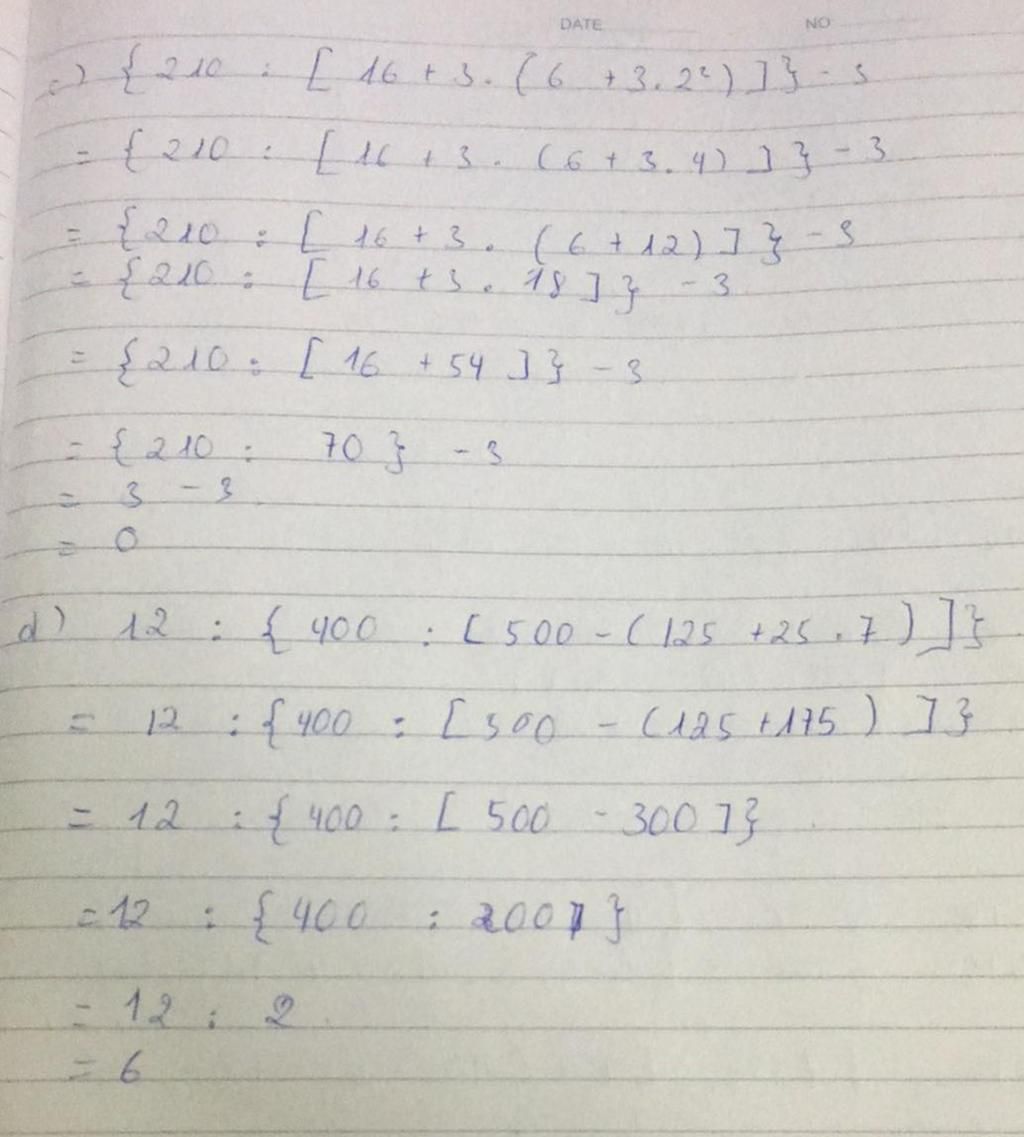 DATE NO
c) { 210 : [ 16 + 3 . ( 6 + 3 . 2² ) ] } - 3
= { 210 : [ 16 + 3 . ( 6 + 3 . 4 ) ] } - 3
= { 210 : [ 16 + 3 . ( 6 + 12 ) ] } - 3
= { 210 : [ 16 + 3 . 18 ] } - 3
= { 210 : [ 16 + 54 ] } - 3
= { 210 : 70 } - 3
= 3 - 3
= 0
d) 12 : { 400 : [ 500 - ( 125 + 25 . 7 ) ] }
= 12 : { 400 : [ 500 - ( 125 + 175 ) ] }
= 12 : { 400 : [ 500 - 300 ] }
= 12 : { 400 : 200 }
= 12 : 2
= 6